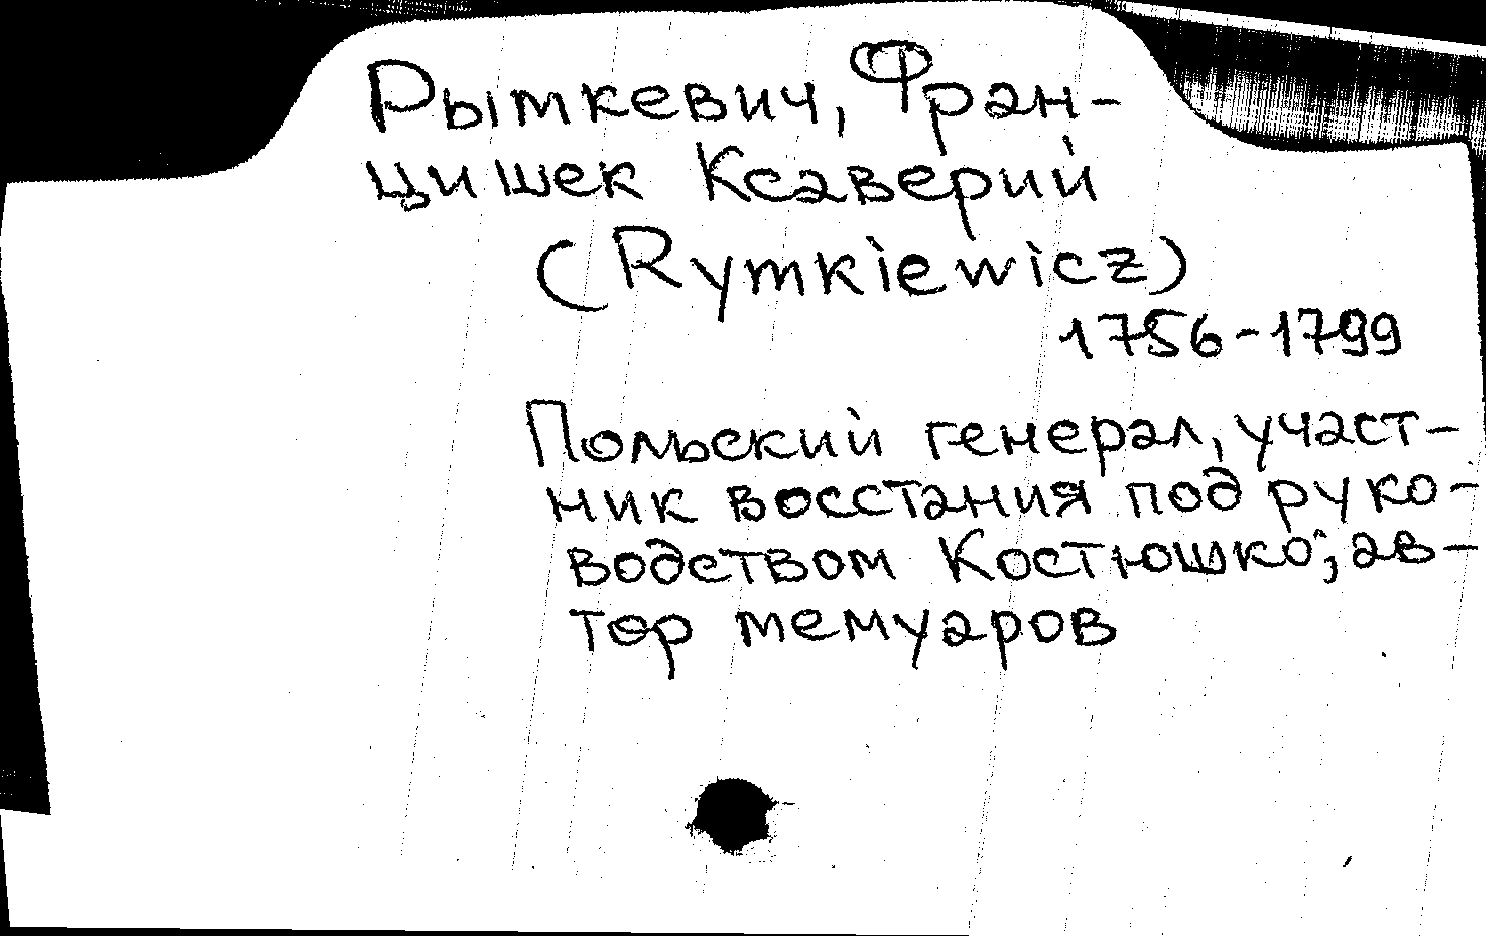 Рымкевич, Фран-
цишек Ксаверий
(Rymkiewicz)
1756-1799
Польский генерал, участ-
ник восстания под руко-
водством Костюшко; ав-
тор мемуаров